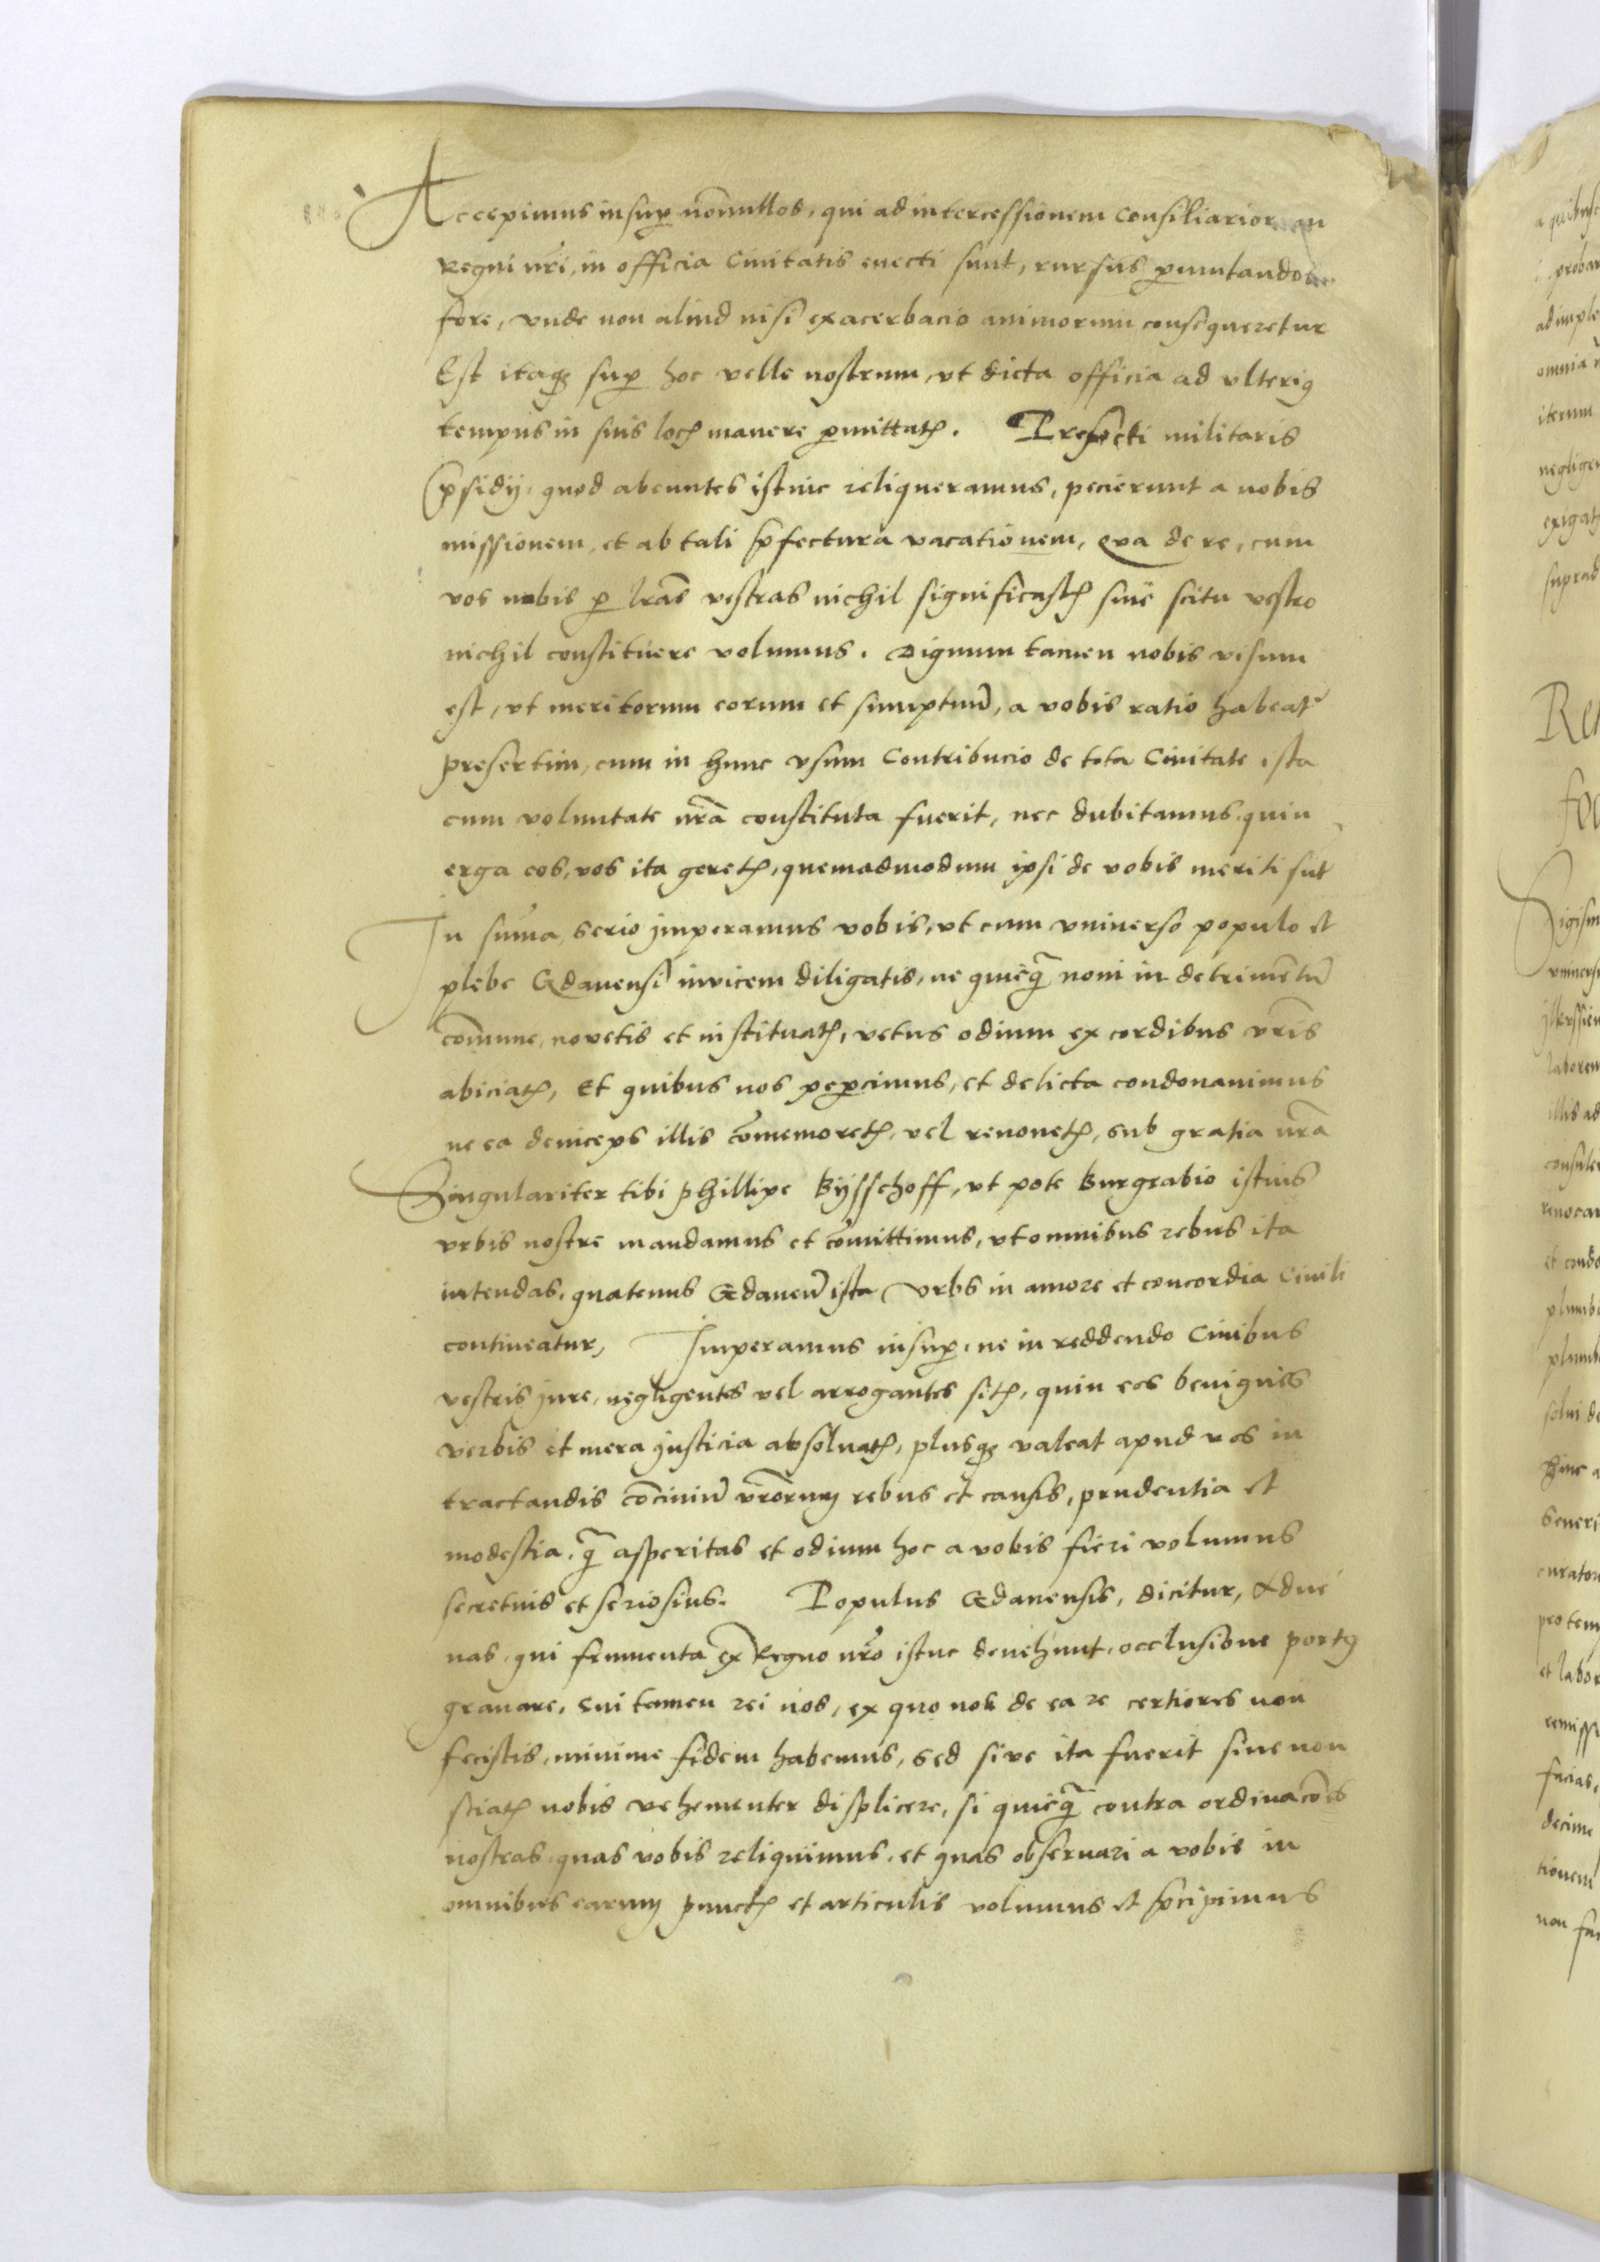 Accepimus insup nōnullos, qui ad intercessionem Consiliariorum
Regni nr̄i, in officia Civitatis euecti sunt, rursus pmutandos
fore, vnde non aliud nisi exacerbacio animorum consequeretur
Est itaqꝫ sup hoc velle nostrum, vt dicta officia ad vlteriꝰ
tempus in suis locꝭ manere pmittatꝭ. Prefecti militaris
p̄sidij, quod abeuntes istuic reliqueramus, pecierunt a nobis
missionem, et ab tali p̄fectura vacationem, Qua de re, cum
vos nobis p lr̄as vestras nichil significastꝭ sine scitu vestro
nichil constituere volumus. Dignum tamen nobis visum
est, vt meritorum eorum et sumptuū, a vobis ratio habeat᷑
presertim, cum in hunc vsum Contribucio de tota Civitate ista
cum voluntate nr̄a constituta fuerit, nec dubitamus, quin
erga eos, vos ita geretꝭ, quemadmodum ipsi de vobis meriti sūt
In sum̄a, serio jmperamus vobis, vt cum vniuerso populo et
plebe Gdanensi invicem diligatis, ne quicq̄ noui in detrimētū
com̄une, novetis et instituatꝭ, vetus odium ex cordibus vr̄is
abiciatꝭ, Et quibus nos pepcimus, et delicta condonauimus
ne ea deinceps illis com̄emoretꝭ, vel renouetꝭ, sub gratia nr̄a
Singulariter tibi phillipe Bysschoff, vt pote Burgrabio istius
vrbis nostre mandamus et com̄ittimus, vt omnibus rebus ita
intendas, quatenus Gdanen̄ ista Vrbs in amore et concordia Ciuili
contineatur, Imperamus insup, ne in reddendo Ciuibus
vestris jure, negligentes vel arrogantes sitꝭ, quin eos benignis
verbis et mera justicia absoluatꝭ, plusqꝫ valeat apud vos in
tractandis cōciuiū vr̄orum rebus et causis, prudentia et
modestia, q̄ asperitas et odium hoc a vobis fieri volumus
secretius et seriosius. Populus Gdanensis, dicitur, Adue
nas, qui frumenta ex Regno nr̄o istuc deuehunt, occlusione portꝰ
grauare, Cui tamen rei nos, ex quo nos de ea re certiores non
fecistis, minime fidem habemus, sed sive ita fuerit siue non
sciatꝭ nobis vehementer displicere, si quicq̄ contra ordinacōes
nostras, quas vobis reliquimus, et quas obseruari a vobis in
omnibus earum punctꝭ et articulis volumus et p̄cipimus